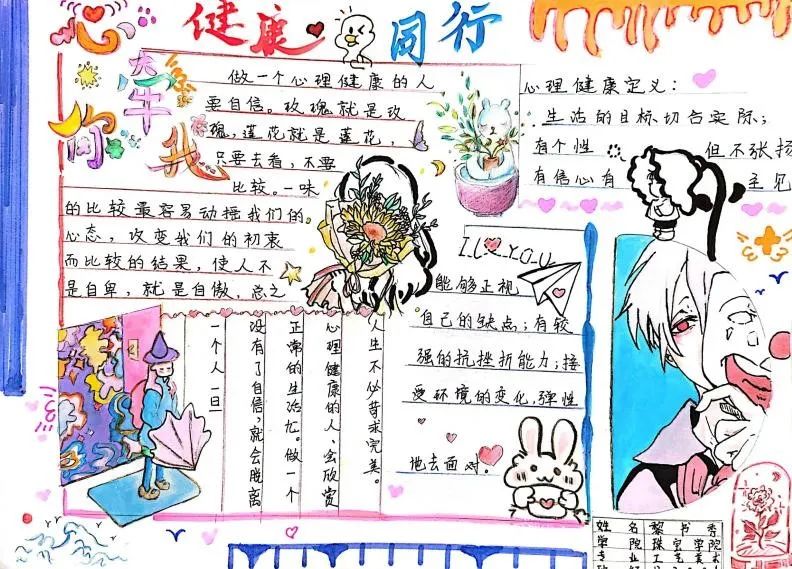 心
牵
你
我
健康
同行
做一个心理健康的人
要自信。玫瑰就是玫
瑰,莲花就是莲花,
只要去看,不要
比较。一味
的比较最容易动摇我们的
心态,改变我们的初衷
而比较的结果,使人不
是自卑,就是自傲,总之
心理健康定义:
生活的目标切合实际;
有个性 但不张扬
有信心有 主见
I L YOU
能够正视
自己的缺点;有较
强的抗挫折能力;接
受环境的变化,弹性
地去面对。
人生不必苛求完美。
心理健康的人、会欣赏
正常的生活尤。做一个
没有了自信,就会脱离
一个人一旦
姓名 黎书秀
学院 珠宝学院
专业 工艺美术